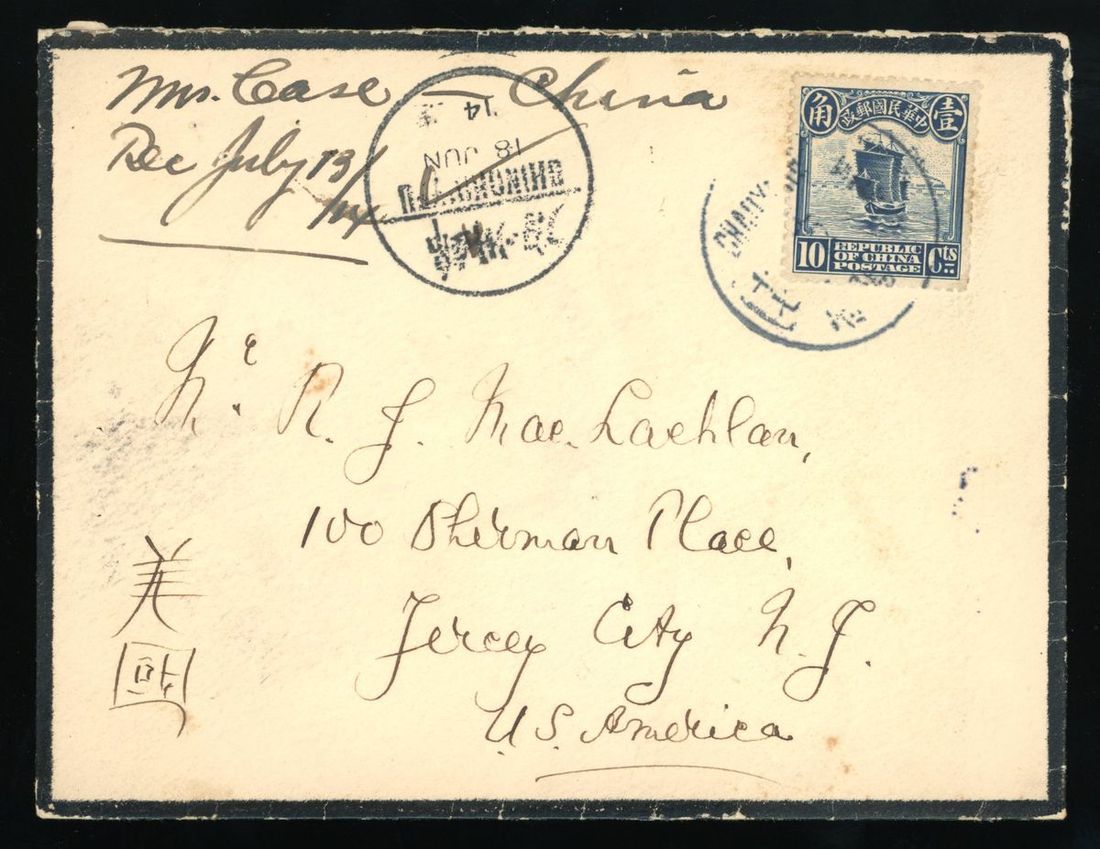 Mrs. Case — China
Rec July 13/
/14
14
18 JUN
中華民國郵政
壹
角
10 REPUBLIC OF CHINA POSTAGE Cts
Mr. R. J. Mac. Lachlan,
100 Sherman Place,
Jercey City N. J.
U.S. America
美
國